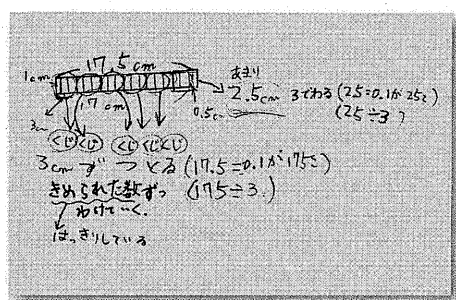 17.5cm
1cm
あまり
2.5cm 3でわる(25=0.1が25こ)
(25÷3)
17cm
0.5cm
3cm
くじ くじ くじ くじ くじ
3cmずつとる(17.5=0.1が175こ)
きめられた数ずつ (175÷3)
わけていく.
はっきりしている